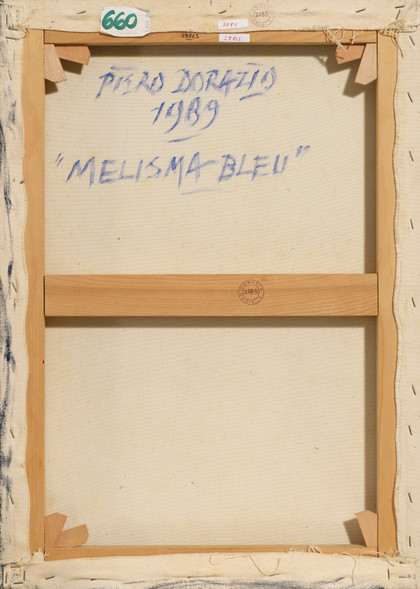 660
PIERO DORAZIO
1989
"MELISMA BLEU"